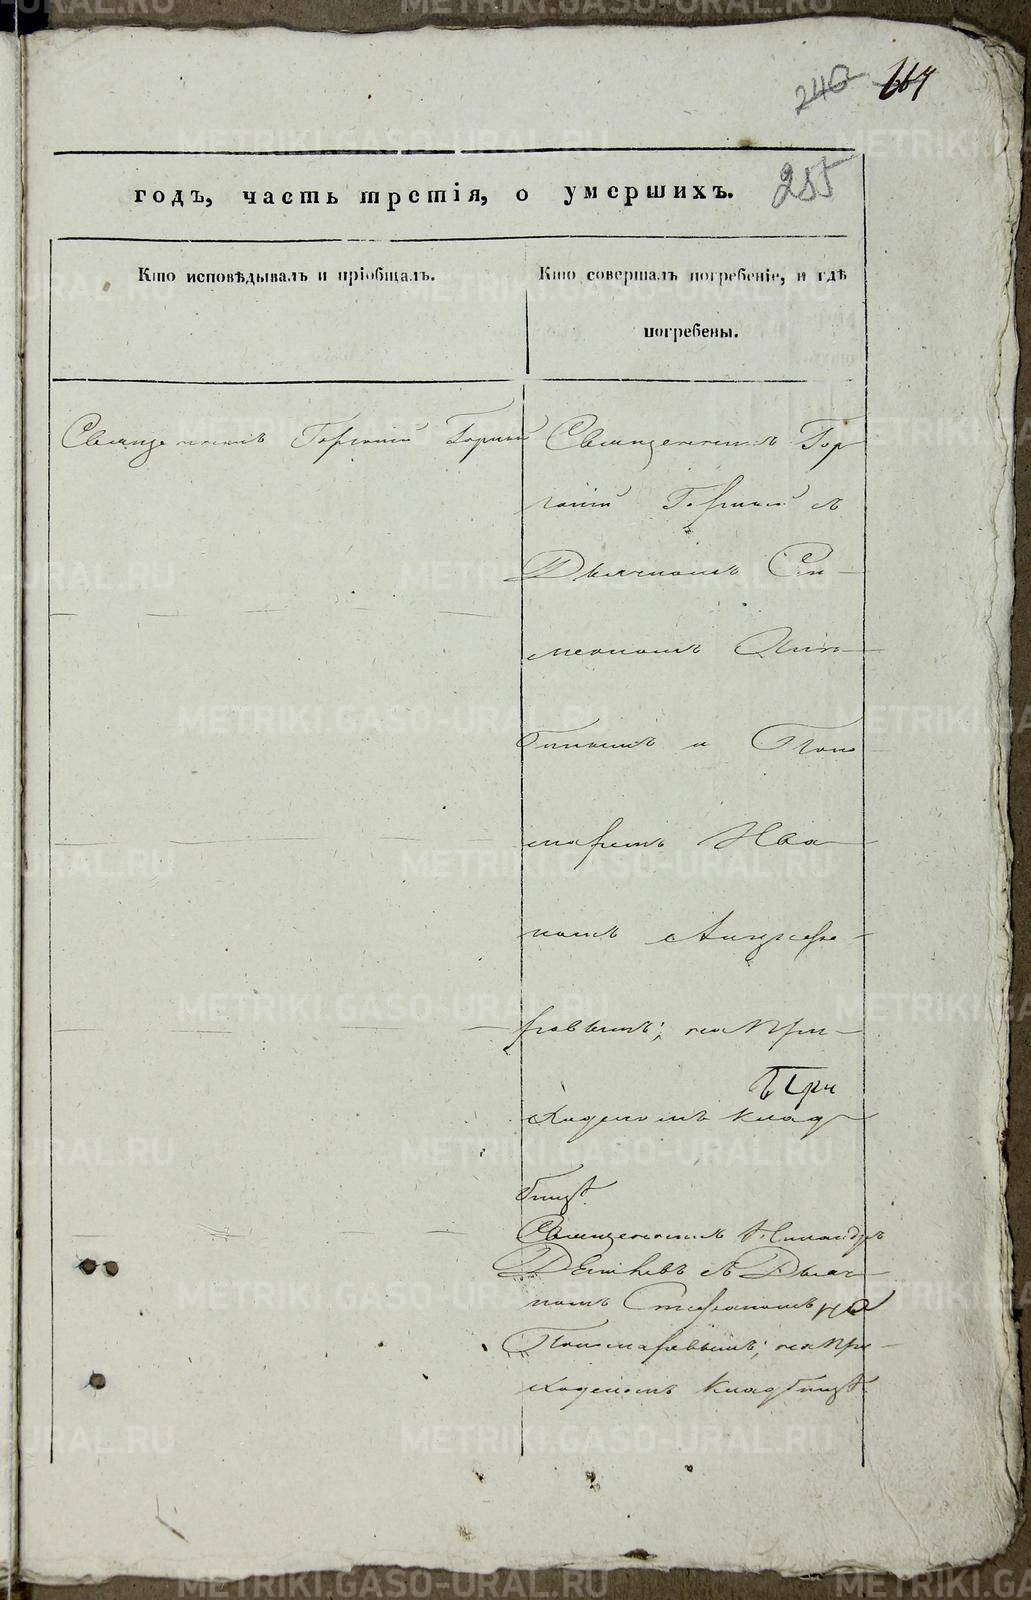 240 167
255
годъ, часть третія, о умершихъ.
Кто исповѣдывалъ и пріобщалъ.
Кто совершалъ погребеніе, и гдѣ
погребены.
Священникъ Горгоній Горный
Священникъ Гор
гоній Горный съ
Дьячкомъ Си
меономъ
и Поно
маремъ Ива
номъ
на При
При
ходскомъ клад
бищѣ
Священникъ Никандръ
съ Дьяч
комъ Стефаномъ
Пономаревымъ; на При
ходскомъ Кладбищѣ
METRIKI.GASO-URAL.RU